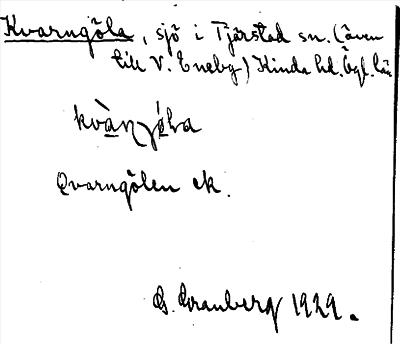 Kvarngöla, sjö i Tjärstad sn. (även
till V. Eneby) Kinda hd. Ögl. län
kvànjǿla
Qvarngölen ek.
G. Granberg 1929.